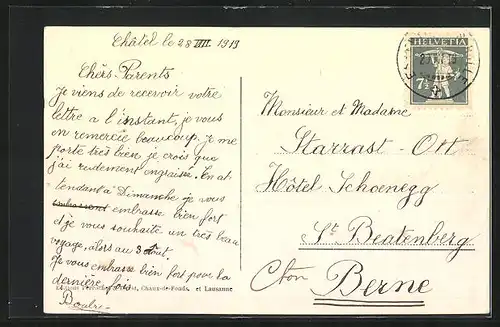 Châtel le 28 VII. 1919
Chèrs Parents
Je viens de recevoir votre
lettre a l'instant, je vous
en remercie beaucoup. Je me
porte très bien je crois que
j'ai rudement engraissé. En at
tendant a Dimanche je vous
embrasse bien fort
et je vous souhaite un très beau
voyage, alors au 3 Août.
Je vous embrasse bien fort pour la
dernière fois
Chaux-de-Fonds, et Lausanne
HELVETIA
7½
Monsieur et Madame
Starrast - Ott
Hôtel Schoenegg
St Beatenberg
Cton Berne